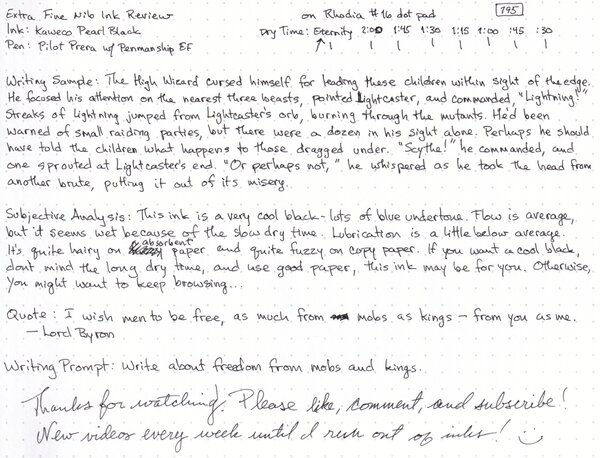 Extra Fine Nib Ink Review on Rhodia #16 dot pad 795
Ink: Kaweco Pearl Black Dry Time: Eternity 2:00 1:45 1:30 1:15 1:00 :45 :30
Pen: Pilot Prera w/ Penmanship EF
Writing Sample: The High Wizard cursed himself for leading these children within sight of the edge.
He focused his attention on the nearest three beasts, pointed Lightcaster, and commanded, "Lightning!"
Streaks of lightning jumped from Lightcaster's orb, burning through the mutants. He'd been
warned of small raiding parties, but there were a dozen in his sight alone. Perhaps he should
have told the children what happens to those dragged under. "Scythe!" he commanded, and
one sprouted at Lightcaster's end. "Or perhaps not," he whispered as he took the head from
another brute, putting it out of its misery.
Subjective Analysis: This ink is a very cool black - lots of blue undertone. Flow is average,
but it seems wet because of the slow dry time. Lubrication is a little below average.
It's quite hairy on absorbent paper and quite fuzzy on copy paper. If you want a cool black,
don't mind the long dry time, and use good paper, this ink may be for you. Otherwise,
you might want to keep browsing...
Quote: I wish men to be free, as much from mobs as kings - from you as me.
- Lord Byron
Writing Prompt: Write about freedom from mobs and kings.
Thanks for watching! Please like, comment, and subscribe!
New videos every week until I run out of inks!